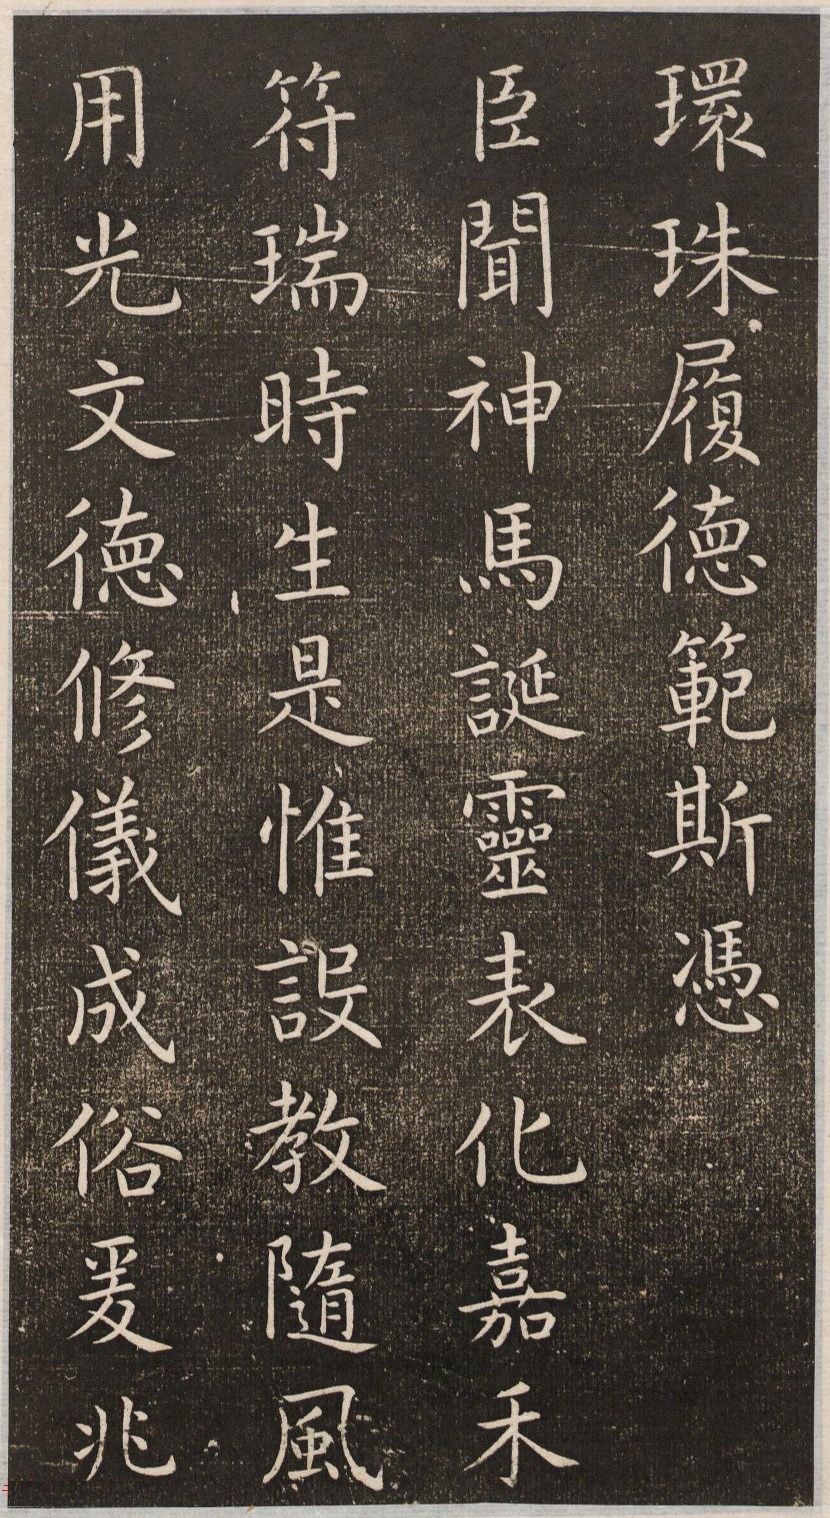 環珠履德範斯憑
臣聞神馬誕靈表化嘉禾
符瑞時生是惟設教隨風
用光文德修儀成俗爰兆